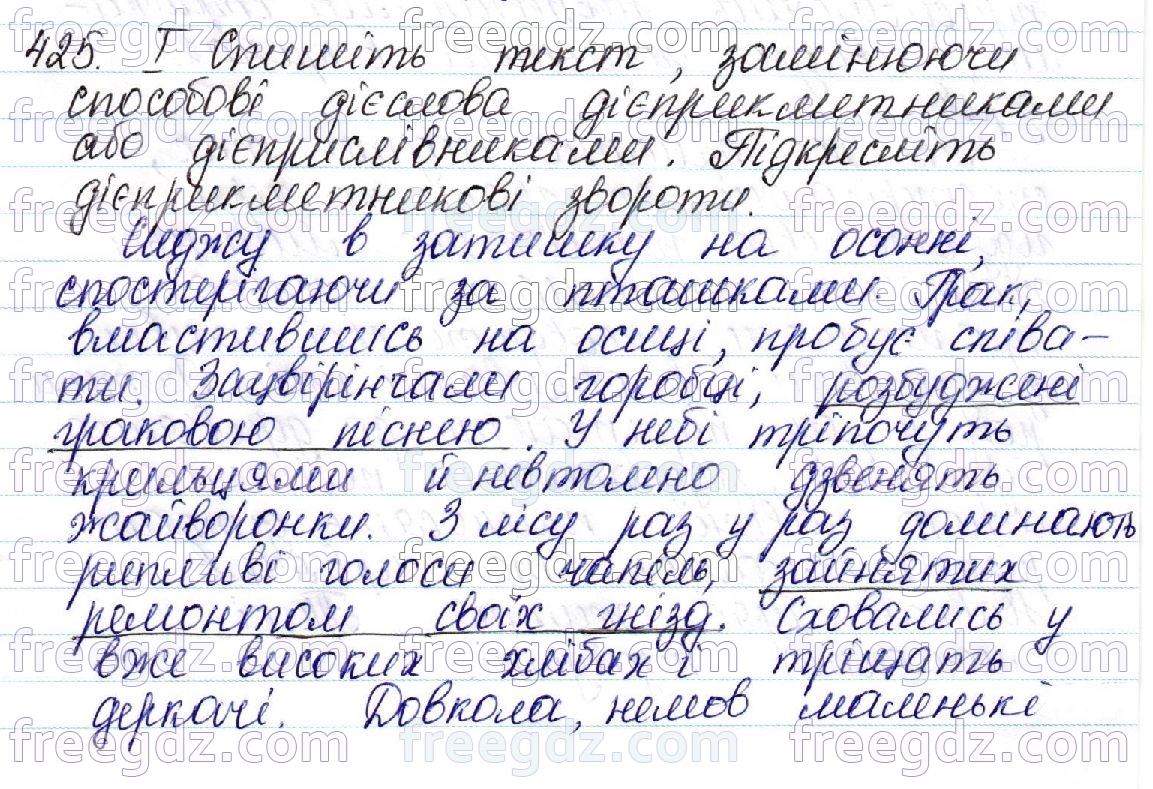 425. I Спишіть текст, замінюючи
способові дієслова дієприкметниками
або дієприслівниками. Підкресліть
дієприкметникові звороти.
Сиджу в затишку на осонні,
спостерігаючи за пташками. Грак,
вмастившись на осиці, пробує співа-
ти. Зацвірінчали горобці, розбуджені
граковою піснею. У небі тріпочуть
крильцями й невтомно дзвенять
жайворонки. З лісу раз у раз долинають
рипливі голоси чапель, зайнятих
ремонтом своїх гнізд. Сховались у
вже високих хлібах і тріщать
деркачі. Довкола, немов маленькі